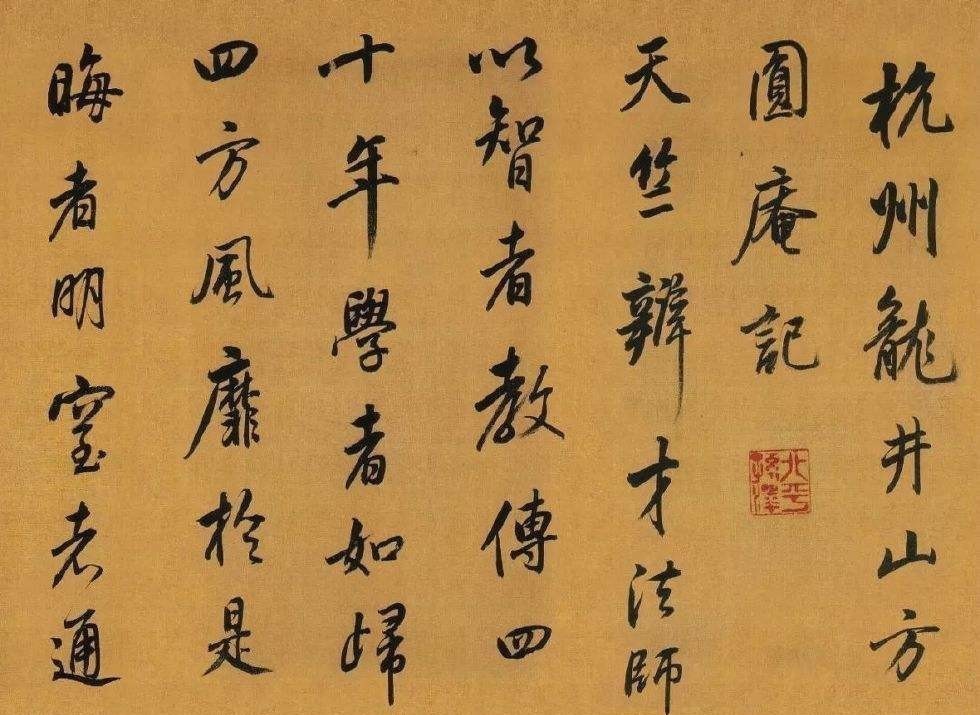 杭州龍井山方
圓庵記
天竺辯才法師
以智者教傳四
十年學者如歸
四方風靡於是
晦者明窒者通